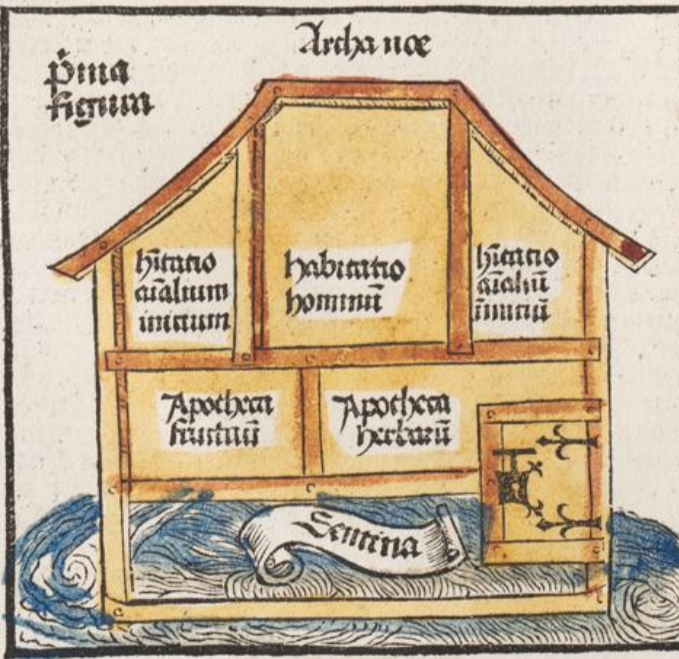 Archa noe
p̄ima
figura
h̄itatio
aīalium
initium
habitatio
hominū
h̄itatio
aīaliū
īmitiū
Apotheca
fructuū
Apotheca
herbarū
Sentina